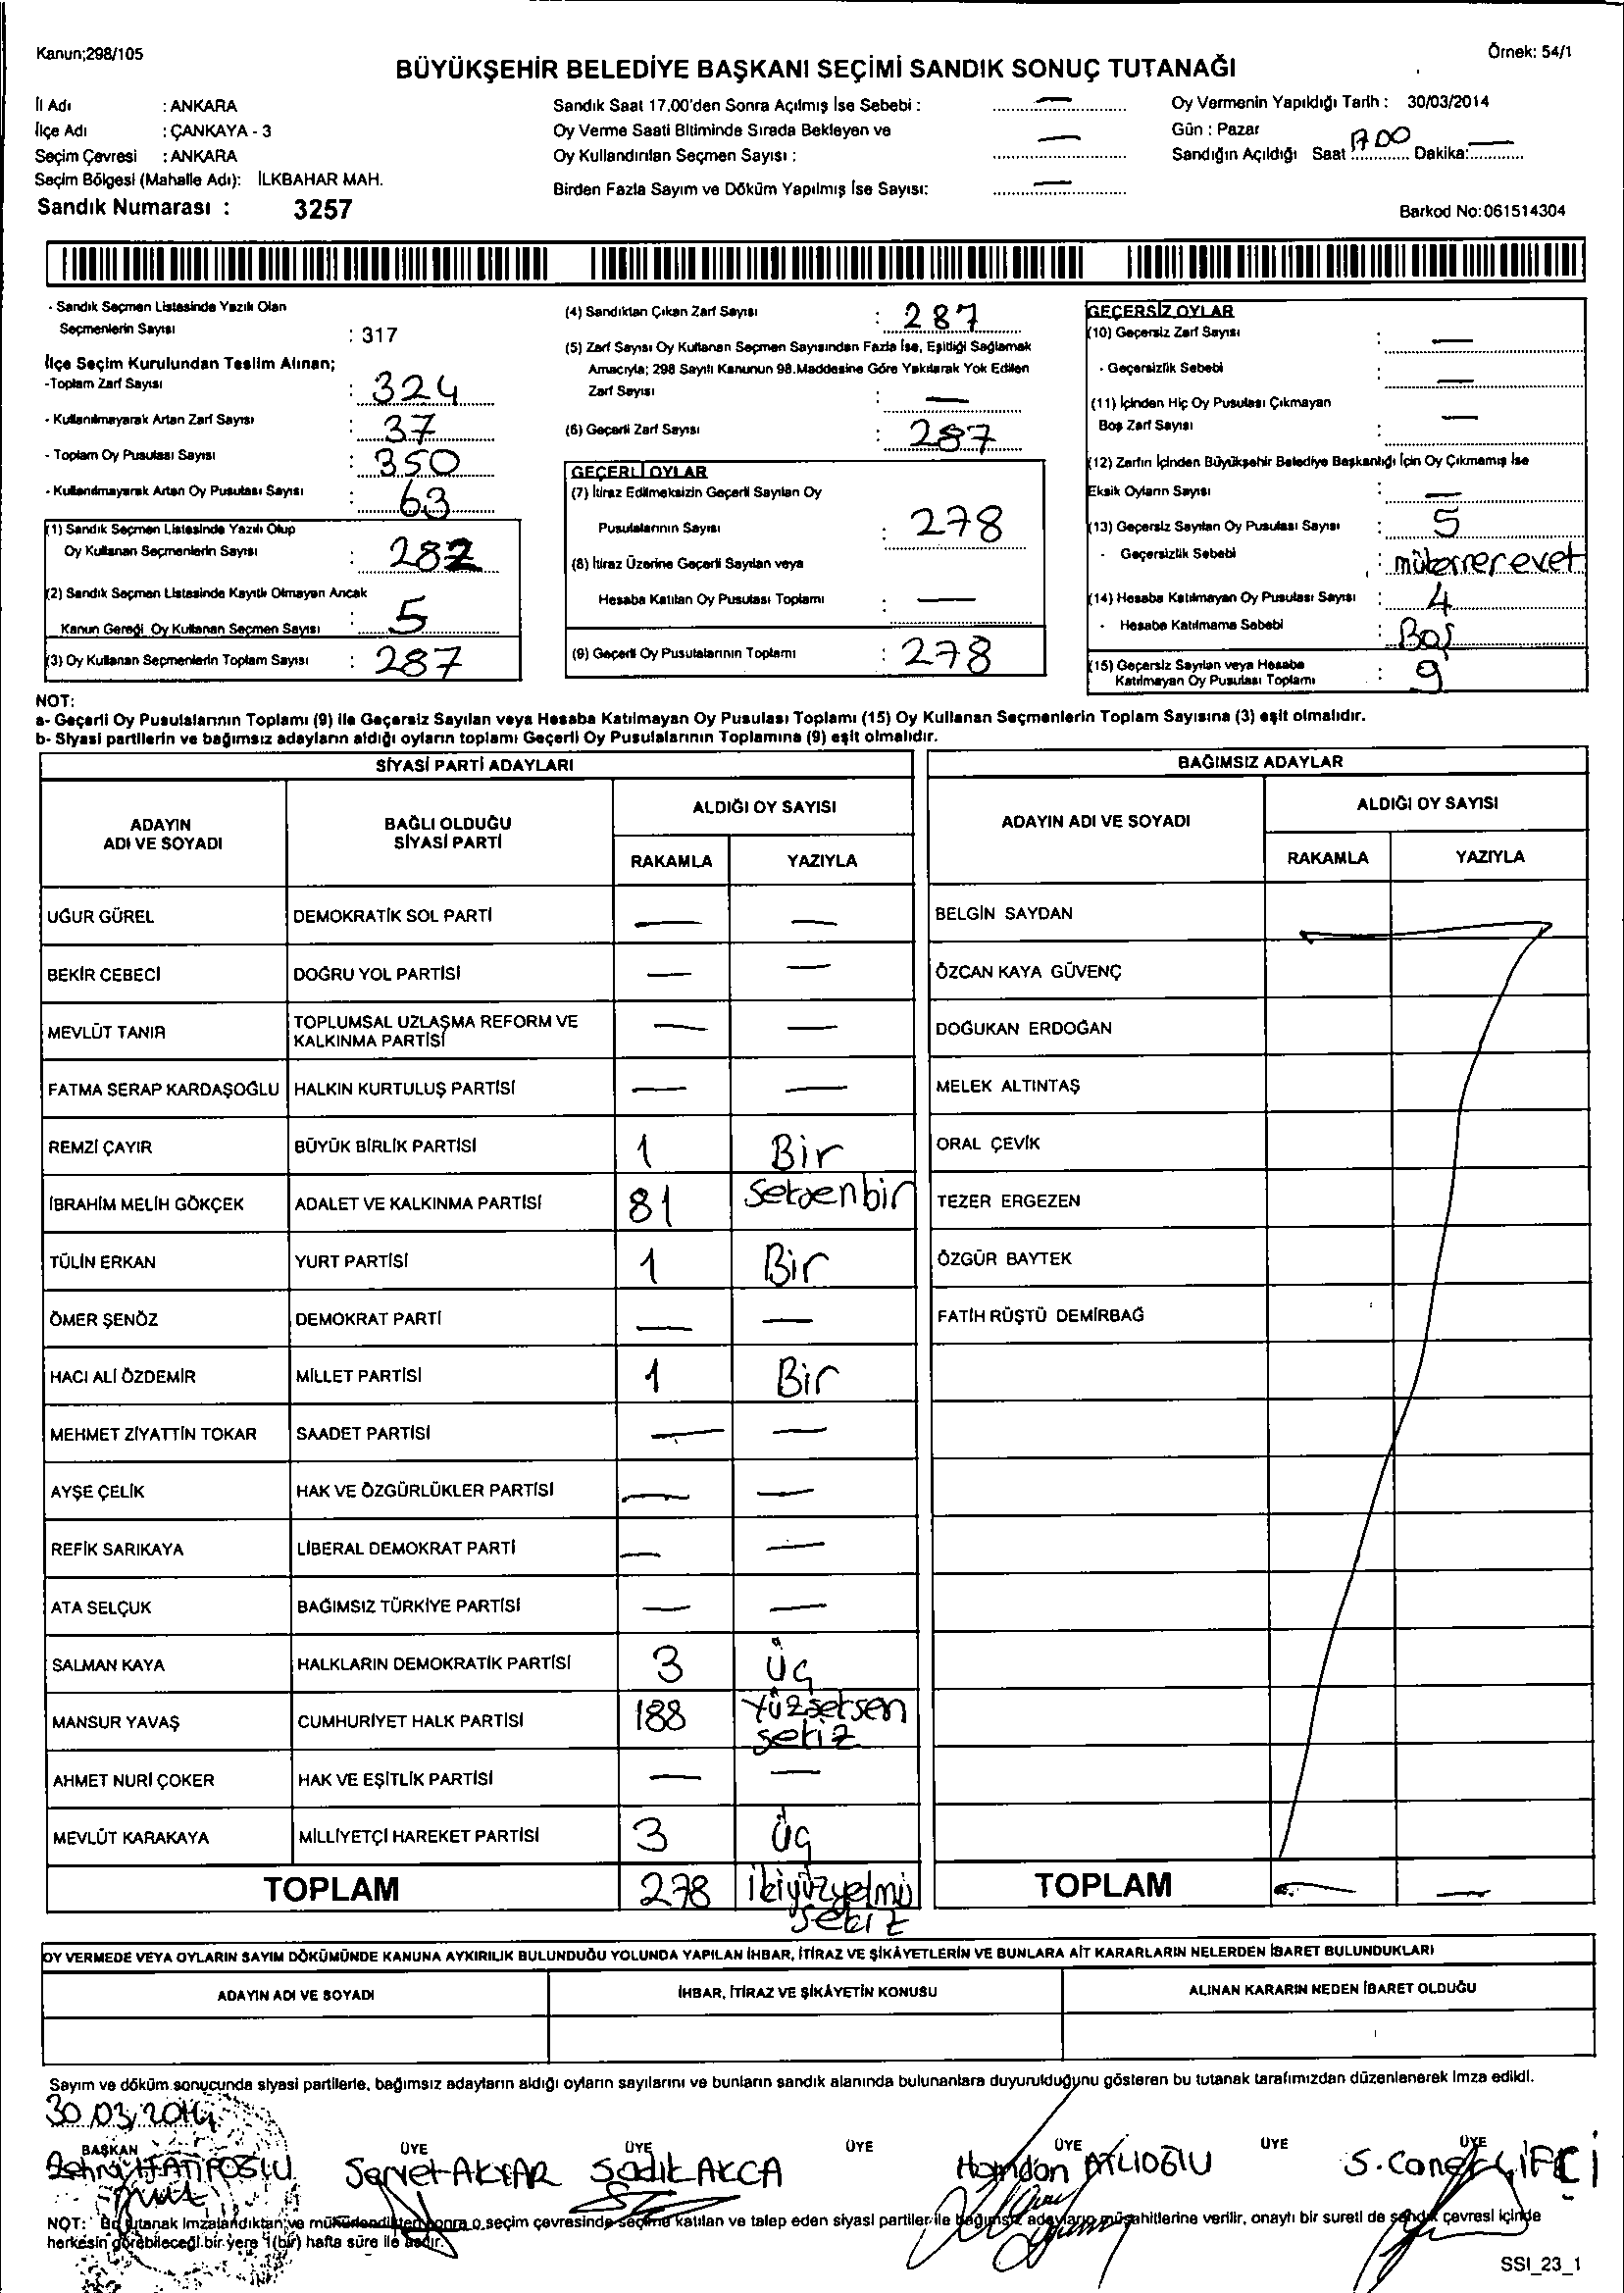 Kanun;298/105
Örnek: 54/1
BÜYÜKŞEHİR BELEDİYE BAŞKANI SEÇİMİ SANDIK SONUÇ TUTANAĞI
İl Adı : ANKARA
İlçe Adı : ÇANKAYA - 3
Seçim Çevresi : ANKARA
Seçim Bölgesi (Mahalle Adı): İLKBAHAR MAH.
Sandık Numarası : 3257
Sandık Saat 17.00'den Sonra Açılmış İse Sebebi : —
Oy Verme Saati Bitiminde Sırada Bekleyen ve
Oy Kullandırılan Seçmen Sayısı : —
Birden Fazla Sayım ve Döküm Yapılmış İse Sayısı: —
Oy Vermenin Yapıldığı Tarih : 30/03/2014
Gün : Pazar
Sandığın Açıldığı Saat 17.00 Dakika: —
Barkod No:061514304
- Sandık Seçmen Listesinde Yazılı Olan
Seçmenlerin Sayısı : 317
İlçe Seçim Kurulundan Teslim Alınan;
-Toplam Zarf Sayısı : 324
- Kullanılmayarak Artan Zarf Sayısı : 37
- Toplam Oy Pusulası Sayısı : 350
- Kullanılmayarak Artan Oy Pusulası Sayısı : 63
(1) Sandık Seçmen Listesinde Yazılı Olup
Oy Kullanan Seçmenlerin Sayısı : 282
(2) Sandık Seçmen Listesinde Kayıtlı Olmayan Ancak
Kanun Gereği Oy Kullanan Seçmen Sayısı : 5
(3) Oy Kullanan Seçmenlerin Toplam Sayısı : 287
(4) Sandıktan Çıkan Zarf Sayısı : 287
(5) Zarf Sayısı Oy Kullanan Seçmen Sayısından Fazla İse, Eşitliği Sağlamak
Amacıyla; 298 Sayılı Kanunun 98.Maddesine Göre Yakılarak Yok Edilen
Zarf Sayısı : —
(6) Geçerli Zarf Sayısı : 287
GEÇERLİ OYLAR
(7) İtiraz Edilmeksizin Geçerli Sayılan Oy
Pusulalarının Sayısı : 278
(8) İtiraz Üzerine Geçerli Sayılan veya
Hesaba Katılan Oy Pusulası Toplamı : —
(9) Geçerli Oy Pusulalarının Toplamı : 278
GEÇERSİZ OYLAR
(10) Geçersiz Zarf Sayısı : —
- Geçersizlik Sebebi : —
(11) İçinden Hiç Oy Pusulası Çıkmayan
Boş Zarf Sayısı : —
(12) Zarfın İçinden Büyükşehir Belediye Başkanlığı İçin Oy Çıkmamış İse
Eksik Oyların Sayısı : —
(13) Geçersiz Sayılan Oy Pusulası Sayısı : 5
- Geçersizlik Sebebi : mükerrer evet
(14) Hesaba Katılmayan Oy Pusulası Sayısı : 4
- Hesaba Katılmama Sebebi : Boş
(15) Geçersiz Sayılan veya Hesaba
Katılmayan Oy Pusulası Toplamı : 9
NOT:
a- Geçerli Oy Pusulalarının Toplamı (9) ile Geçersiz Sayılan veya Hesaba Katılmayan Oy Pusulası Toplamı (15) Oy Kullanan Seçmenlerin Toplam Sayısına (3) eşit olmalıdır.
b- Siyasi partilerin ve bağımsız adayların aldığı oyların toplamı Geçerli Oy Pusulalarının Toplamına (9) eşit olmalıdır.
SİYASİ PARTİ ADAYLARI
ADAYIN ADI VE SOYADI
BAĞLI OLDUĞU SİYASİ PARTİ
ALDIĞI OY SAYISI
RAKAMLA YAZIYLA
UĞUR GÜREL DEMOKRATİK SOL PARTİ — —
BEKİR CEBECİ DOĞRU YOL PARTİSİ — —
MEVLÜT TANIR TOPLUMSAL UZLAŞMA REFORM VE KALKINMA PARTİSİ — —
FATMA SERAP KARDAŞOĞLU HALKIN KURTULUŞ PARTİSİ — —
REMZİ ÇAYIR BÜYÜK BİRLİK PARTİSİ 1 Bir
İBRAHİM MELİH GÖKÇEK ADALET VE KALKINMA PARTİSİ 81 Seksenbir
TÜLİN ERKAN YURT PARTİSİ 1 Bir
ÖMER ŞENÖZ DEMOKRAT PARTİ — —
HACI ALİ ÖZDEMİR MİLLET PARTİSİ 1 Bir
MEHMET ZİYATTİN TOKAR SAADET PARTİSİ — —
AYŞE ÇELİK HAK VE ÖZGÜRLÜKLER PARTİSİ — —
REFİK SARIKAYA LİBERAL DEMOKRAT PARTİ — —
ATA SELÇUK BAĞIMSIZ TÜRKİYE PARTİSİ — —
SALMAN KAYA HALKLARIN DEMOKRATİK PARTİSİ 3 Üç
MANSUR YAVAŞ CUMHURİYET HALK PARTİSİ 188 Yüzseksen sekiz
AHMET NURİ ÇOKER HAK VE EŞİTLİK PARTİSİ — —
MEVLÜT KARAKAYA MİLLİYETÇİ HAREKET PARTİSİ 3 Üç
TOPLAM 278 ikiyüzyetmiş sekiz
BAĞIMSIZ ADAYLAR
ADAYIN ADI VE SOYADI
ALDIĞI OY SAYISI
RAKAMLA YAZIYLA
BELGİN SAYDAN
ÖZCAN KAYA GÜVENÇ
DOĞUKAN ERDOĞAN
MELEK ALTINTAŞ
ORAL ÇEVİK
TEZER ERGEZEN
ÖZGÜR BAYTEK
FATİH RÜŞTÜ DEMİRBAĞ
TOPLAM — —
OY VERMEDE VEYA OYLARIN SAYIM DÖKÜMÜNDE KANUNA AYKIRILIK BULUNDUĞU YOLUNDA YAPILAN İHBAR, İTİRAZ VE ŞİKÂYETLERİN VE BUNLARA AİT KARARLARIN NELERDEN İBARET BULUNDUKLARI
ADAYIN ADI VE SOYADI İHBAR, İTİRAZ VE ŞİKÂYETİN KONUSU ALINAN KARARIN NEDEN İBARET OLDUĞU
Sayım ve döküm sonucunda siyasi partilerle, bağımsız adayların aldığı oyların sayılarını ve bunların sandık alanında bulunanlara duyurulduğunu gösteren bu tutanak tarafımızdan düzenlenerek imza edildi.
30.03.2014
BAŞKAN ÜYE ÜYE ÜYE ÜYE ÜYE ÜYE
Zehra HATİPOĞLU Servet AKYAR Sadık AKCA Hamdan S. Caner ÇİFÇİ
NOT: Bu tutanak imzalandıktan ve mühürlendikten sonra o seçim çevresinde seçime katılan ve talep eden siyasi partiler ile bağımsız adayların müşahitlerine verilir, onaylı bir sureti de sandık çevresi içinde
herkesin görebileceği bir yere 1(bir) hafta süre ile asılır.
SSI_23_1